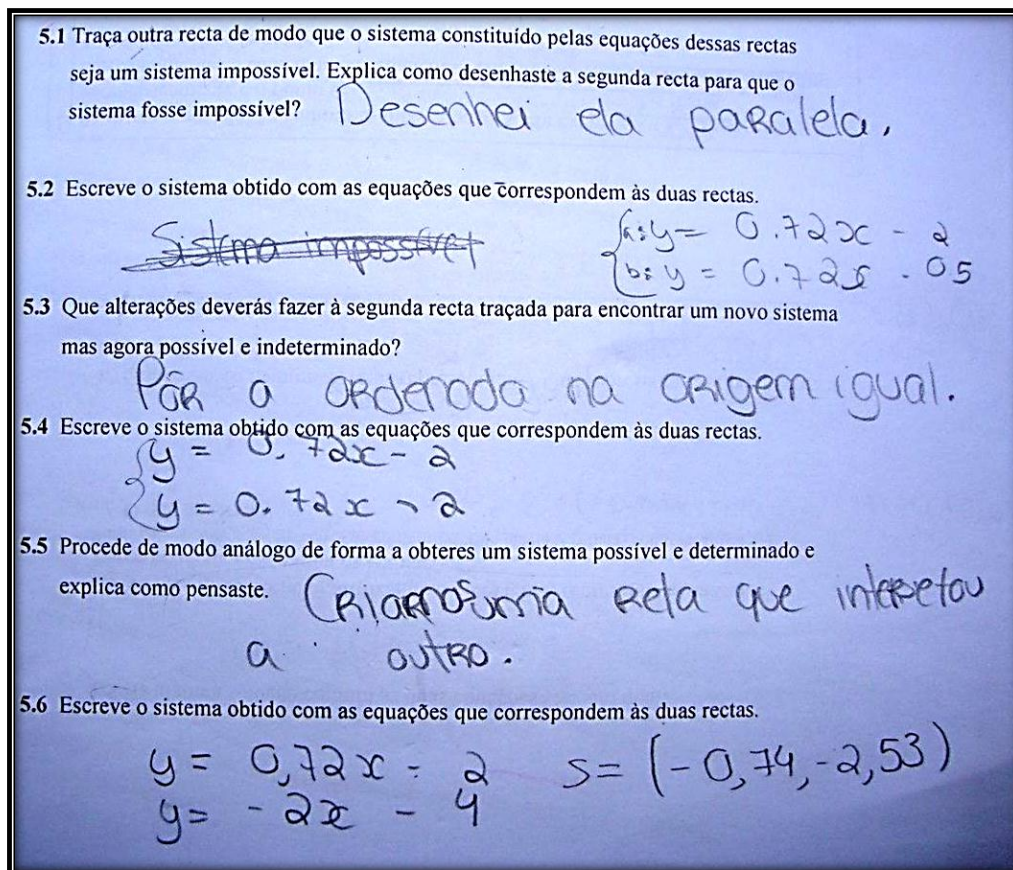 5.1 Traça outra recta de modo que o sistema constituído pelas equações dessas rectas
seja um sistema impossível. Explica como desenhaste a segunda recta para que o
sistema fosse impossível? Desenhei ela paralela.
5.2 Escreve o sistema obtido com as equações que correspondem às duas rectas.
Sistema impossível
a: y = 0.72x - 2
b: y = 0.72x - 05
5.3 Que alterações deverás fazer à segunda recta traçada para encontrar um novo sistema
mas agora possível e indeterminado?
Pôr a ordenada na origem igual.
5.4 Escreve o sistema obtido com as equações que correspondem às duas rectas.
y = 0.72x - 2
y = 0.72x - 2
5.5 Procede de modo análogo de forma a obteres um sistema possível e determinado e
explica como pensaste. Criamos uma reta que intersetou
a outro.
5.6 Escreve o sistema obtido com as equações que correspondem às duas rectas.
y = 0,72x - 2 S= (-0,74,-2,53)
y= -2x - 4